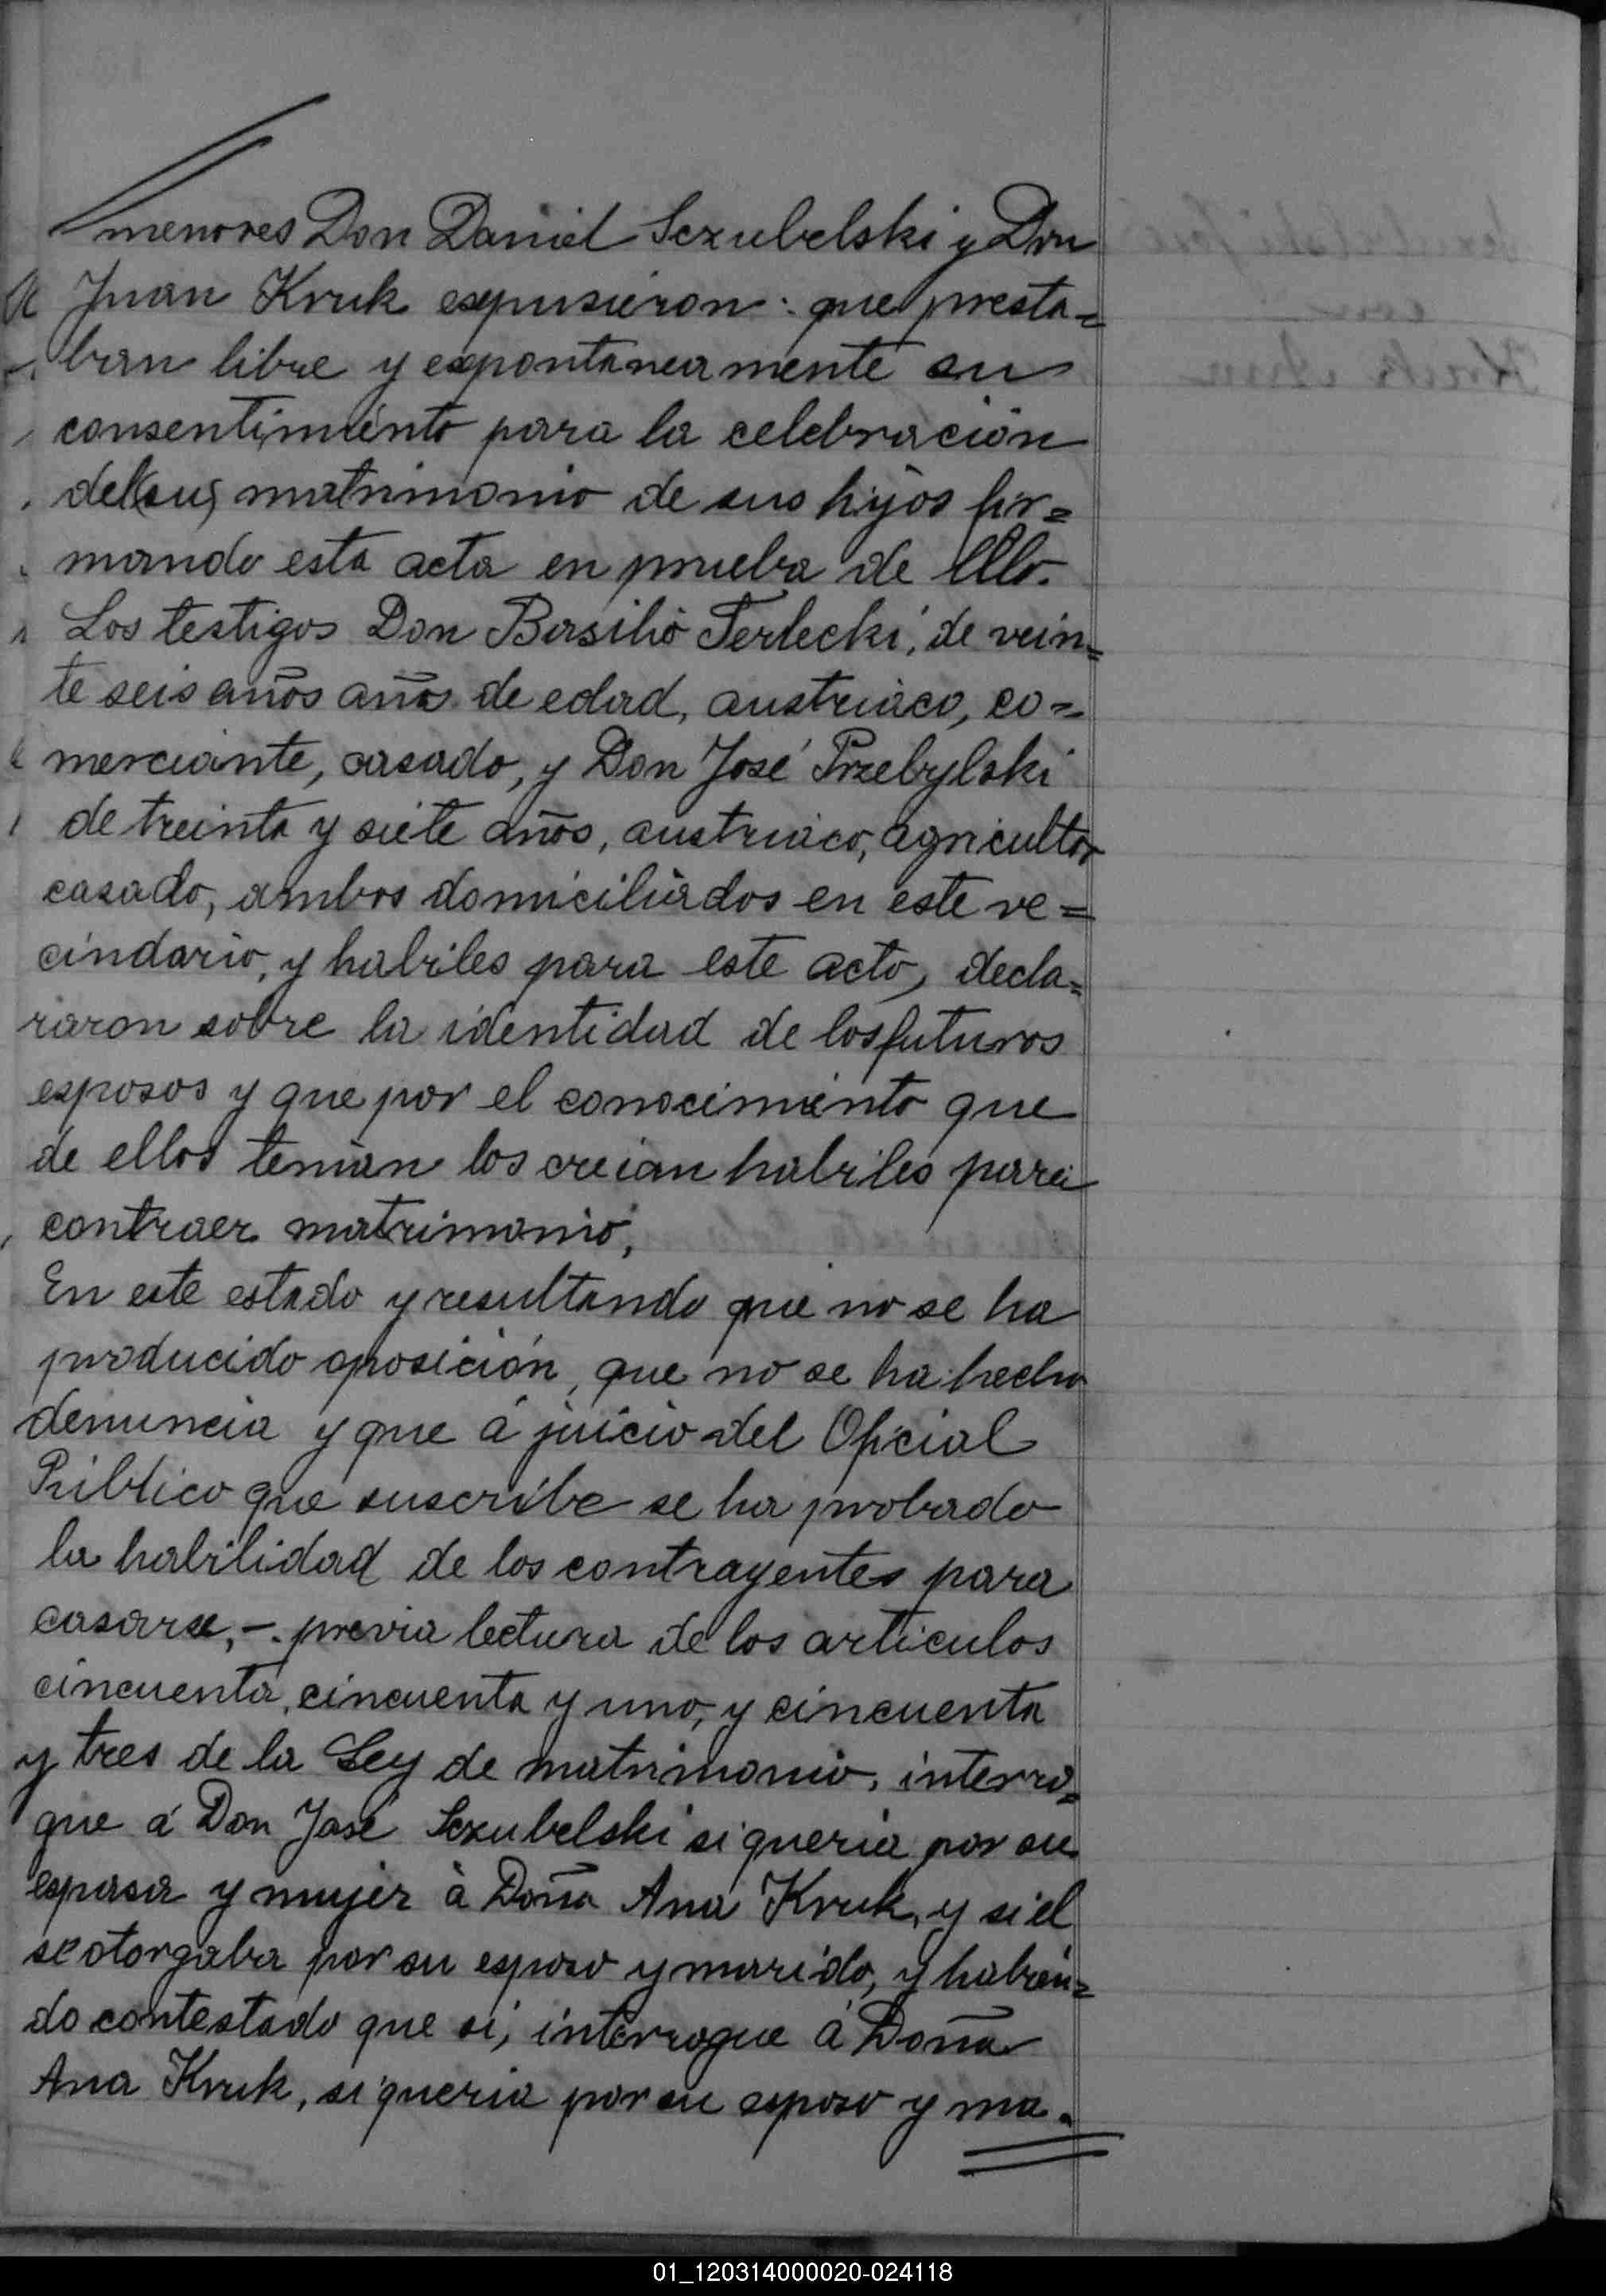 menores Don Daniel Sczubelski y Don
Juan Kruk expusieron: que presta=
ban libre y espontaneamente su
consentimiento para la celebración
del (su) matrimonio de sus hijos fir=
mando esta acta en prueba de ello.
Los testigos Don Basilio Terlecki, de vein=
te seis años años de edad, austriaco, co=
merciante, casado, y Don José Przebylski
de treinta y siete años, austriaco, agricultor
casado, ambos domiciliados en este ve=
cindario, y habiles para este acto, decla=
raron sobre la identidad de los futuros
esposos y que por el conocimiento que
de ellos tenian los creian habiles para
contraer matrimonio,
En este estado y resultando que no se ha
producido oposición, que no se ha hecho
denuncia y que á juicio del Oficial
Público que suscribe se ha probado
la habilidad de los contrayentes para
casarse, -. previa lectura de los articulos
cincuenta, cincuenta y uno, y cincuenta
y tres de la Ley de matrimonio, interro=
gue á Don José Sczubelski si queria por su
esposa y mujer à Doña Ana Kruk, y si el
se otorgaba por su esposo y marido, y habien=
do contestado que si, interrogue á Doña
Ana Kruk, si queria por su esposo y ma=
01_120314000020-024118